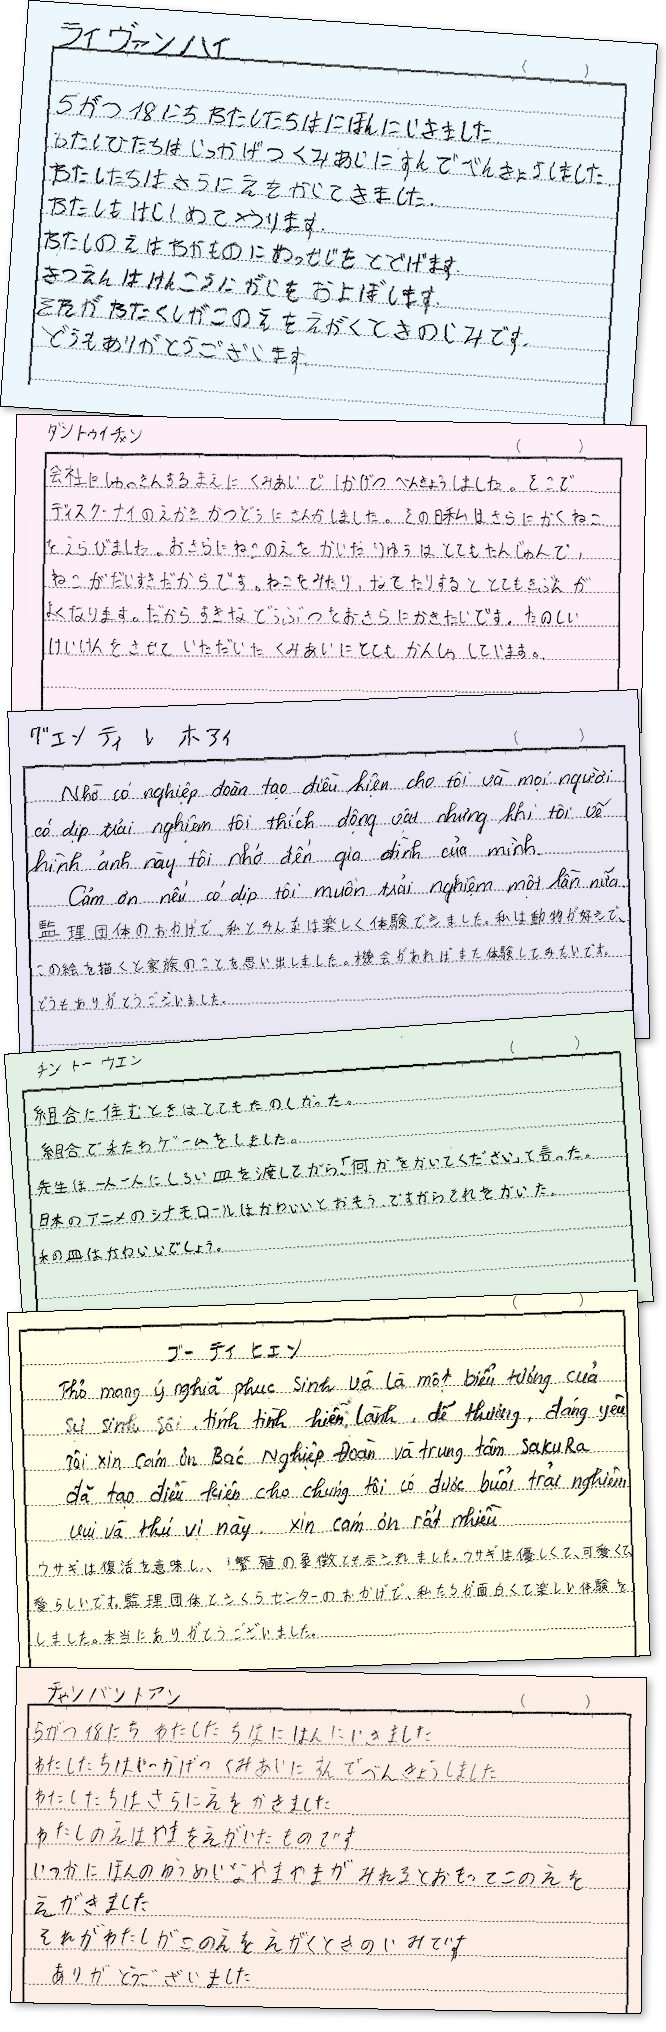 ライ ヴァン ハイ
( )
5がつ 18にち わたしたちは にほんに じきました
わたしひたちは じっかげつ くみあじに すんで べんきょうしました.
わたしたちは さらに えを かじてきました.
わたしも はじめて つります.
わたしの えは わかものに めっせじを とどげます.
きつえんは けんこうに がじを およぼします.
それが わたくしが このえを えがくときの じみです.
どうも ありがとうございます.
ダン トゥイ チャン
( )
会社に しゅっきんする まえに くみあいで 1かげつ べんきょうしました。そこで
ディスクーナイの えかき かつどうに さんかしました。その日私は さらに かくねこ
を えらびました。おさらに ねこのえを かいた りゆうは とても たんじゅんで,
ねこが だいすきだからです。ねこをみたり, なでたりすると とても きぶんが
よくなります。だから すきな どうぶつを おさらに かきたいです。たのしい
けいけんを させて いただいた くみあいに とても かんしゃ しています。
グエン ティ レ ホアイ
( )
Nhờ có nghiệp đoàn tạo điều kiện cho tôi và mọi người
có dịp trải nghiệm tôi thích động vật nhưng khi tôi vẽ
hình ảnh này tôi nhớ đến gia đình của mình.
Cảm ơn nếu có dịp tôi muốn trải nghiệm một lần nữa.
監理団体のおかげで、私とみんなは楽しく体験できました。私は動物が好きで、
この絵を描くと家族のことを思い出しました。機会があればまた体験してみたいです。
どうもありがとうございました。
チン トー ウエン
( )
組合に住むときはとてもたのしかった。
組合で私たちゲームをしました。
先生は一人一人にしろい皿を渡してがら、「何かをかいてください」と言った。
日本のアニメのシナモロールはかわいいとおもう、ですからそれをかいた。
私の皿はかわいいでしょう。
( )
ブー ティ ヒエン
Thỏ mang ý nghĩa phục sinh và là một biểu tượng của
sự sinh sôi, tính tình hiền lành, dễ thương, đáng yêu
Tôi xin cảm ơn Bác Nghiệp Đoàn và trung tâm SakuRa
đã tạo điều kiện cho chúng tôi có được buổi trải nghiệm
vui và thú vị này. xin cảm ơn rất nhiều
ウサギは復活を意味し、繁殖の象徴とも示されました。ウサギは優しくて、可愛くて、
愛らしいです。監理団体とさくらセンターのおかげで、私たちが面白くて楽しい体験を
しました。本当にありがとうございました。
チャン バン トアン
( )
5がつ 18にち わたしたちは にほんに いきました
わたしたちは いっかげつ くみあいに すんで べんきょうしました
わたしたちは さらに えを かきました
わたしの えは やまを えがいた ものです
いつか にほんの ゆうめいな やまやまが みれると おもって このえを
えがきました
それが わたしが このえを えがくときの いみです
ありがとうございました